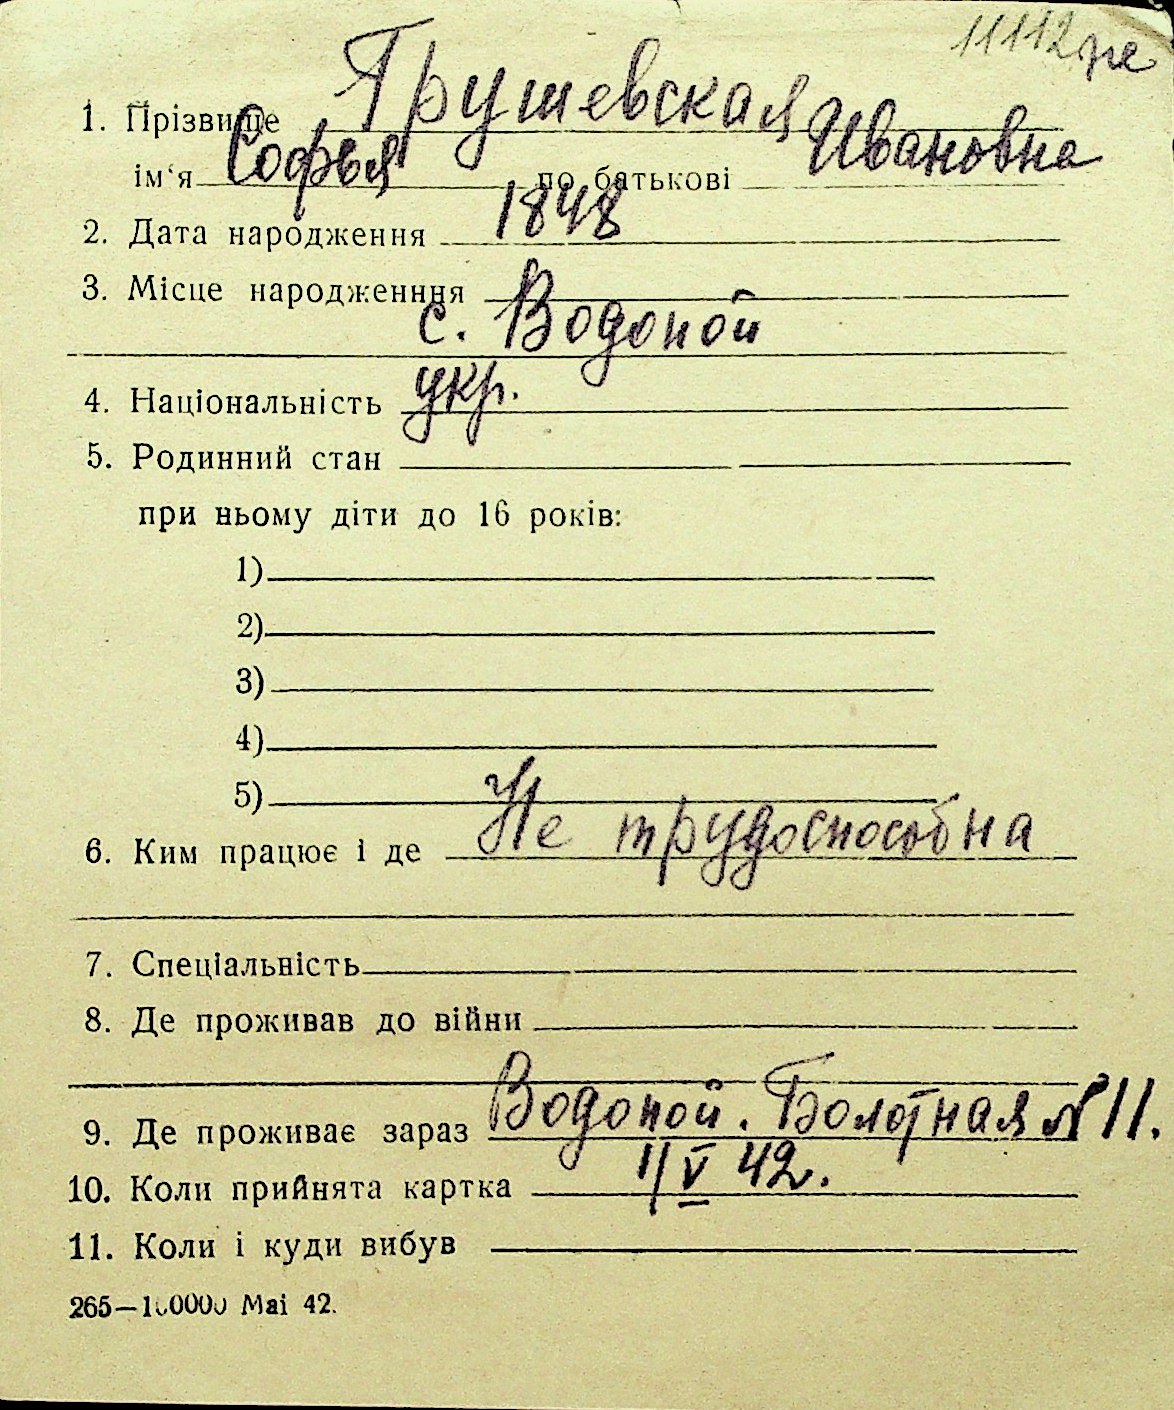 11112
1. Прізвище Грушевская
ім‘я Софья по батькові Ивановна
2. Дата народження 1848
3. Місце народженння
с. Водопой
4. Національність укр.
5. Родинний стан
при ньому діти до 16 років:
1)
2)
3)
4)
5)
6. Ким працює і де Не трудоспособна
7. Спеціальність
8. Де проживав до війни
9. Де проживає зараз Водопой. Болотная № 11.
10. Коли прийнята картка 1/V 42.
11. Коли і куди вибув
265—100000 Маі 42.